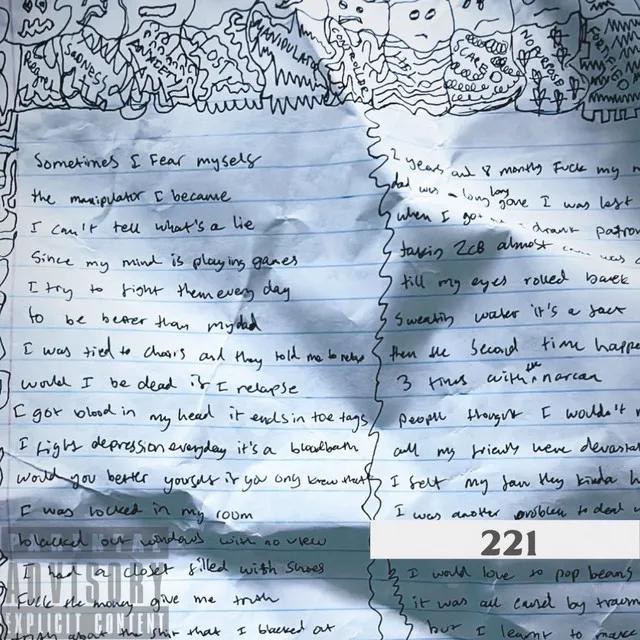 SADNESS
MANIPULATE
SCARS
NO PURPOSE
Sometimes I Fear myself
the manipulator I became
I can't tell what's a lie
Since my mind is playing games
I try to fight them every day
to be better than my dad
I was tied to chairs and they told me to relap
would I be dead if I relapse
I got blood in my head it ends in toe tags
I fight depression everyday it's a bloodbath
would you better yourself if you only knew that
I was locked in my room
blacked out windows with no view
I had a closet filled with shoes
Fuck the money give me truth
truth about the shit that I blacked out
2 years and 8 months Fuck my m
dad was a long long gone I was lost
when I got drank patron
taking 2cb almost was
till my eyes rolled back
Sweating water it's a fact
then the second time happe
3 times with the narcan
people thought I wouldn't
all my friends were devastat
I felt my fam they kinda h
I was another problem to deal
221
I would love to pop beans
it was all caused by traum
but I learned to
PARENTAL
ADVISORY
EXPLICIT CONTENT